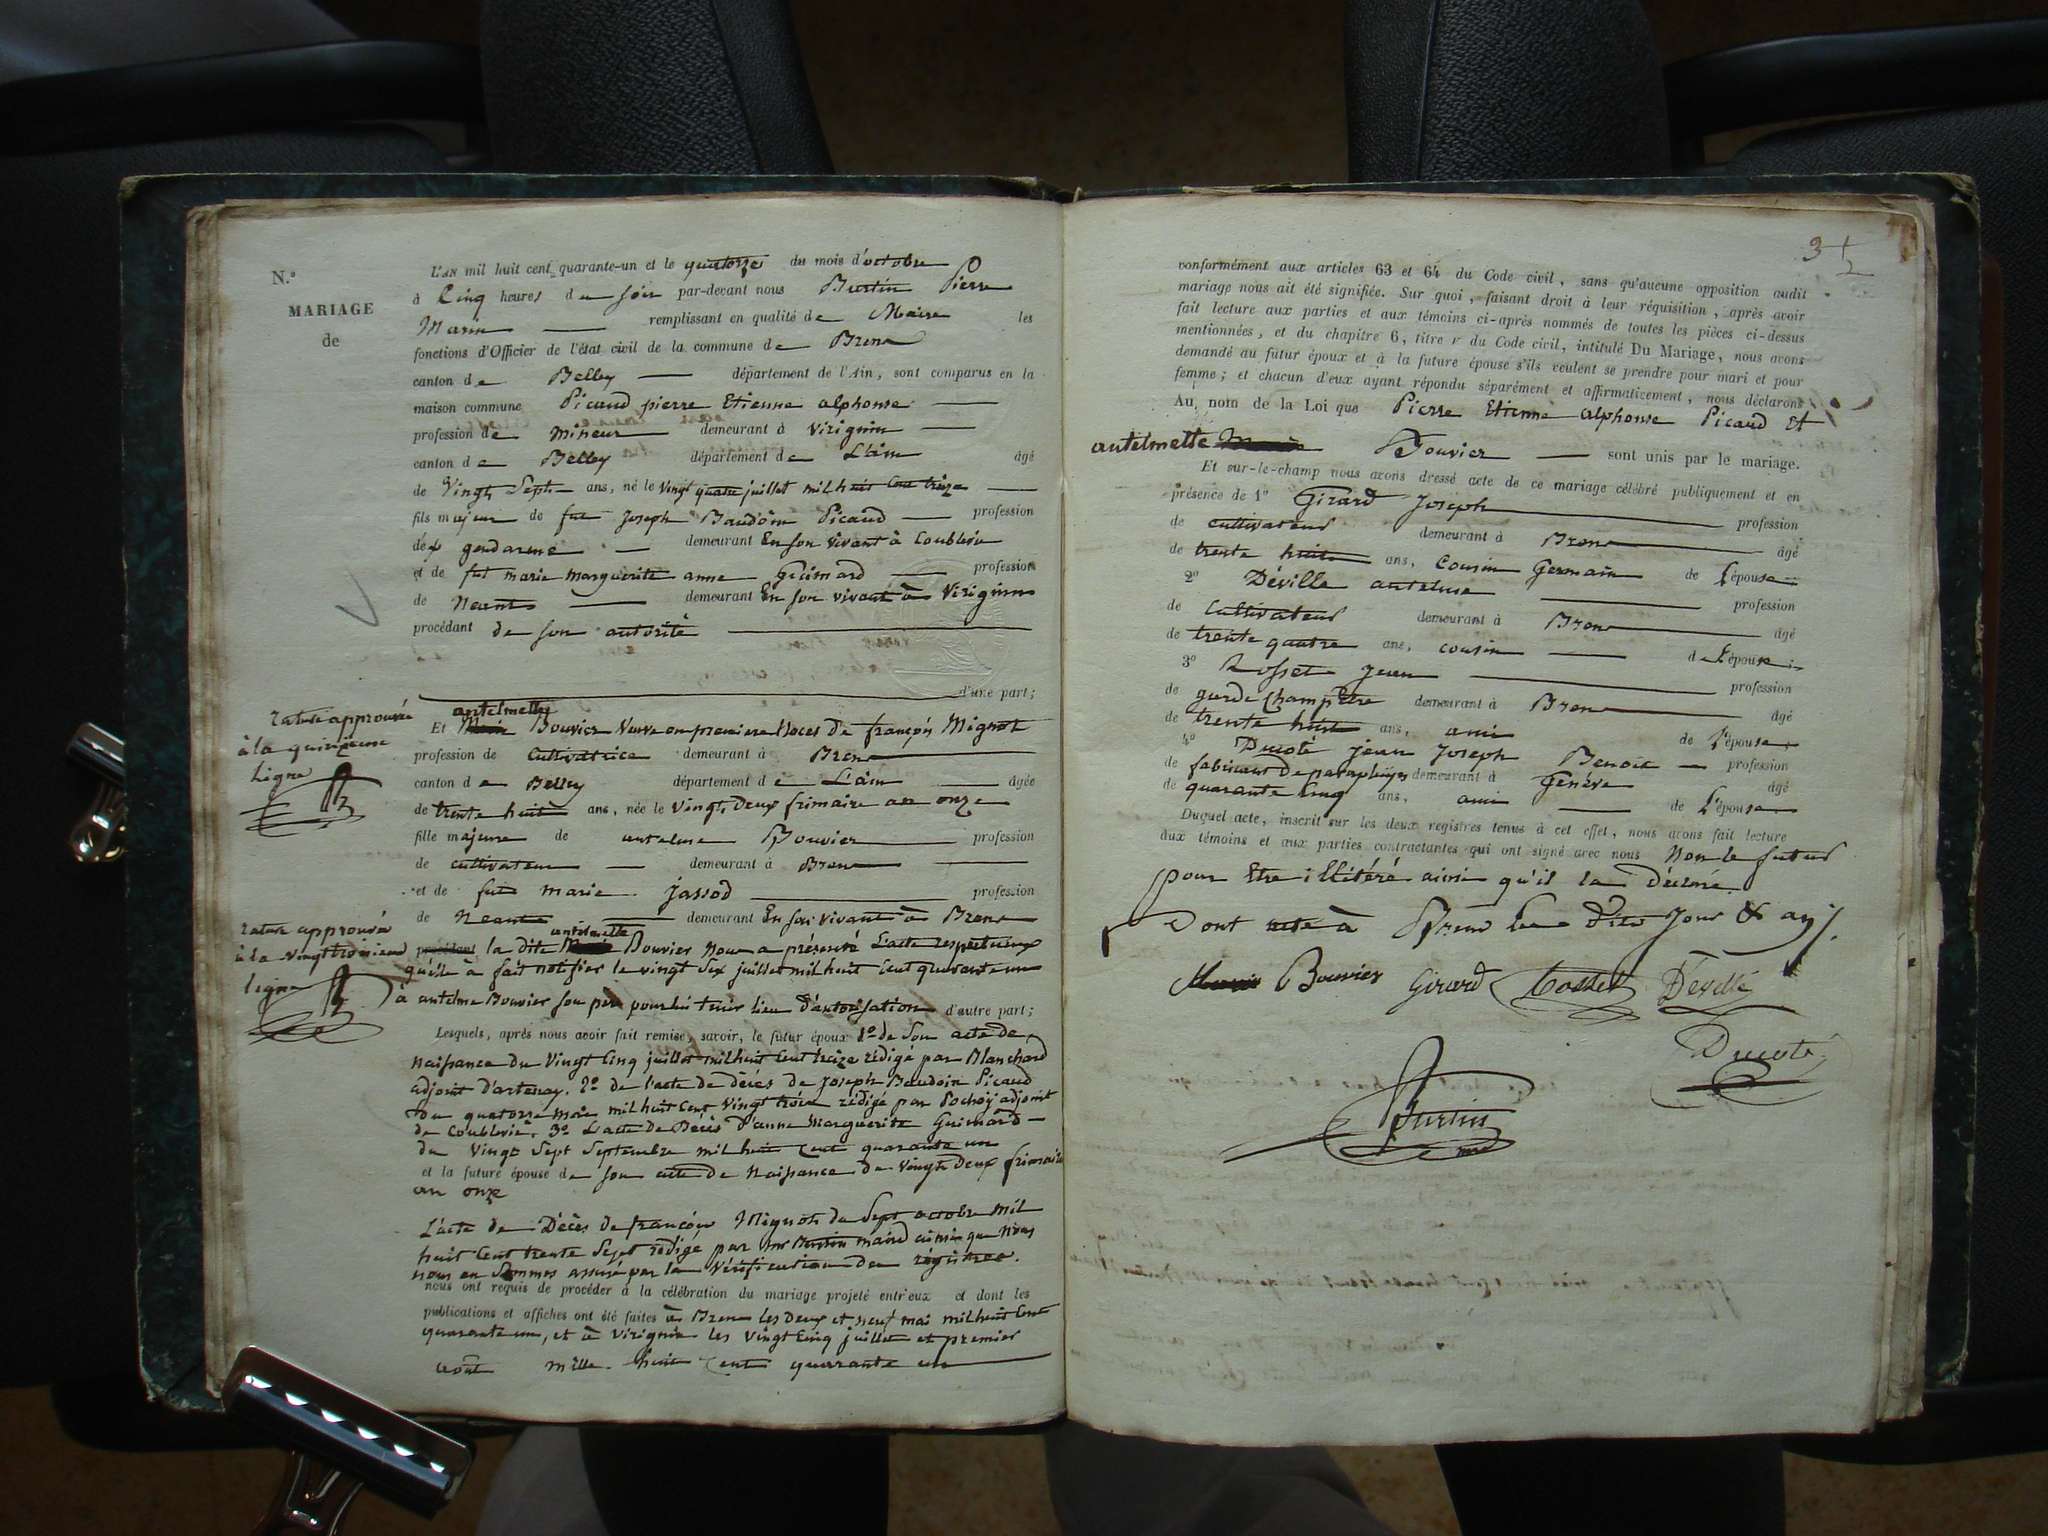 N.°
MARIAGE
de
L'AN mil huit cent quarante-un et le quatorze du mois d'octobre
à Cinq heures de soir par-devant nous Burtin Pierre
Marin remplissant en qualité de Maire les
fonctions d'Officier de l'état civil de la commune de Brens
canton de Belley département de l'Ain, sont comparus en la
maison commune Picaud pierre Etienne alphonse
profession de mineur demeurant à Virignin
canton de Belley département de L'ain âgé
de Vingt Sept ans, né le Vingt quatre juillet mil huit Cent treize
fils majeur de fut Joseph Baudoin Picaud profession
de gendarme demeurant En son vivant à Coublevie
et de fut marie marguerite anne Guimard profession
de Neant demeurant En son vivant à Virignin
procédant de son autorité
d'une part;
rature approuvée
à la quinzeme
ligne
antelmette
Et Marie Bouvier Veuve en premiere Noces de françois Mignot
profession de Cultivatrice demeurant à Brens
canton de Belley département de L'ain âgée
de trente huit ans, née le Vingt Deux frimaire an onze
fille majeure de antelme Bouvier profession
de cultivateur demeurant à Brens
et de fut marie jassod profession
de Neante demeurant En son vivant à Brens
rature approuvée
à la vingt troisieme
ligne
antelmette
procédant la dite Marie Bouvier Nous a présenté L'acte respectueux
qu'elle à fait notifier le vingt Six juillet mil huit Cent quarante un
à antelme Bouvier son père pour lui tenir lieu D'autorisation d'autre part;
Lesquels, après nous avoir fait remise, savoir, le futur époux 1° de Son acte de
naissance du Vingt Cinq juillet mil huit Cent treize rédigé par Blanchard
adjoint d'artenay. 2° de l'acte de décès de Joseph Baudoin Picaud
du quatorze mars mil huit Cent Vingt trois rédigé par Pochoy adjoint
de Coublevie. 3° L'acte de Décès D'anne Marguerite Guimard
du Vingt Sept Septembre mil huit Cent quarante un
et la future épouse de son acte de Naissance du vingt Deux frimaire
an onze
L'acte de Décès de françois Mignot du Sept octobre mil
huit Cent trente Sept rédigé par Mr Burtin maire ainsi que Nous
nous en Sommes assuré par la Vérification des régistres.
nous ont requis de procéder à la célébration du mariage projeté entr'eux et dont les
publications et affiches ont été faites à Brens les Deux et neuf mai mil huit Cent
quarante un, et à Virignin les Vingt Cinq juillet et premier
août mille huit Cent quarante un
3
conformément aux articles 63 et 64 du Code civil, sans qu'aucune opposition audit
mariage nous ait été signifiée. Sur quoi, faisant droit à leur réquisition, après avoir
fait lecture aux parties et aux témoins ci-après nommés de toutes les pièces ci-dessus
mentionnées, et du chapitre 6, titre v du Code civil, intitulé Du Mariage, nous avons
demandé au futur époux et à la future épouse s'ils veulent se prendre pour mari et pour
femme; et chacun d'eux ayant répondu séparément et affirmativement, nous déclarons
Au nom de la Loi que Pierre Etienne alphonse Picaud Et
antelmette Marie Bouvier sont unis par le mariage.
Et sur-le-champ nous avons dressé acte de ce mariage célébré publiquement et en
présence de 1° Girard Joseph profession
de cultivateur demeurant à Brens âgé
de trente huit ans, Cousin Germain de L'épouse
2° Déville antelme profession
de Cultivateur demeurant à Brens âgé
de trente quatre ans, cousin de L'épouse
3° Rosset Jean profession
de garde Champêtre demeurant à Brens âgé
de trente huit ans, ami de l'épouse
4° Ducoté jean Joseph Benoit profession
de fabricant de parapluyes demeurant à Genève âgé
de quarante Cinq ans, ami de L'épouse
Duquel acte, inscrit sur les deux registres tenus à cet effet, nous avons fait lecture
aux témoins et aux parties contractantes qui ont signé avec nous Non le futur
pour Etre illitéré ainsi qu'il la déclaré
Dont acte à Brens les Dits Jour & an.
Marie Bouvier Girard Rosset Déville
Ducoté
Burtin